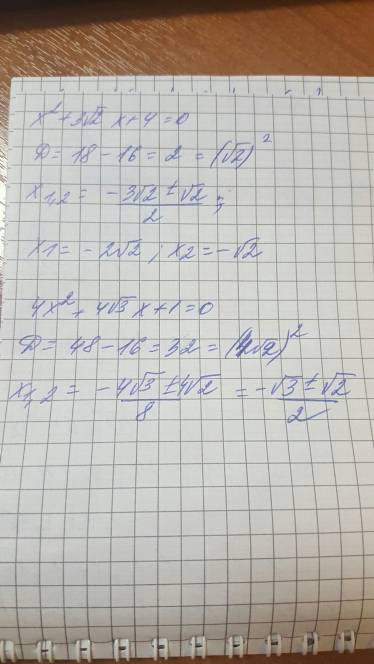 x² + 3√2 x + 4 = 0
D = 18 - 16 = 2 = (√2)²
x₁,₂ = (-3√2 ± √2)/2 ;
x1 = -2√2 ; x2 = -√2
4x² + 4√3 x + 1 = 0
D = 48 - 16 = 32 = (4√2)²
x₁,₂ = (-4√3 ± 4√2)/8 = (-√3 ± √2)/2